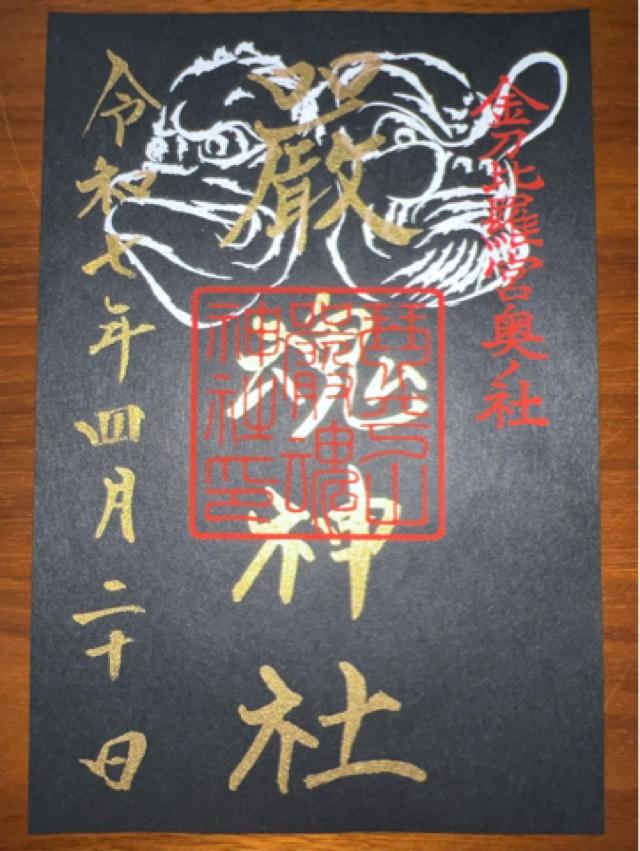 金刀比羅宮奥ノ社
嚴魂神社
琴平山
嚴魂
神社印
令和七年四月二十日